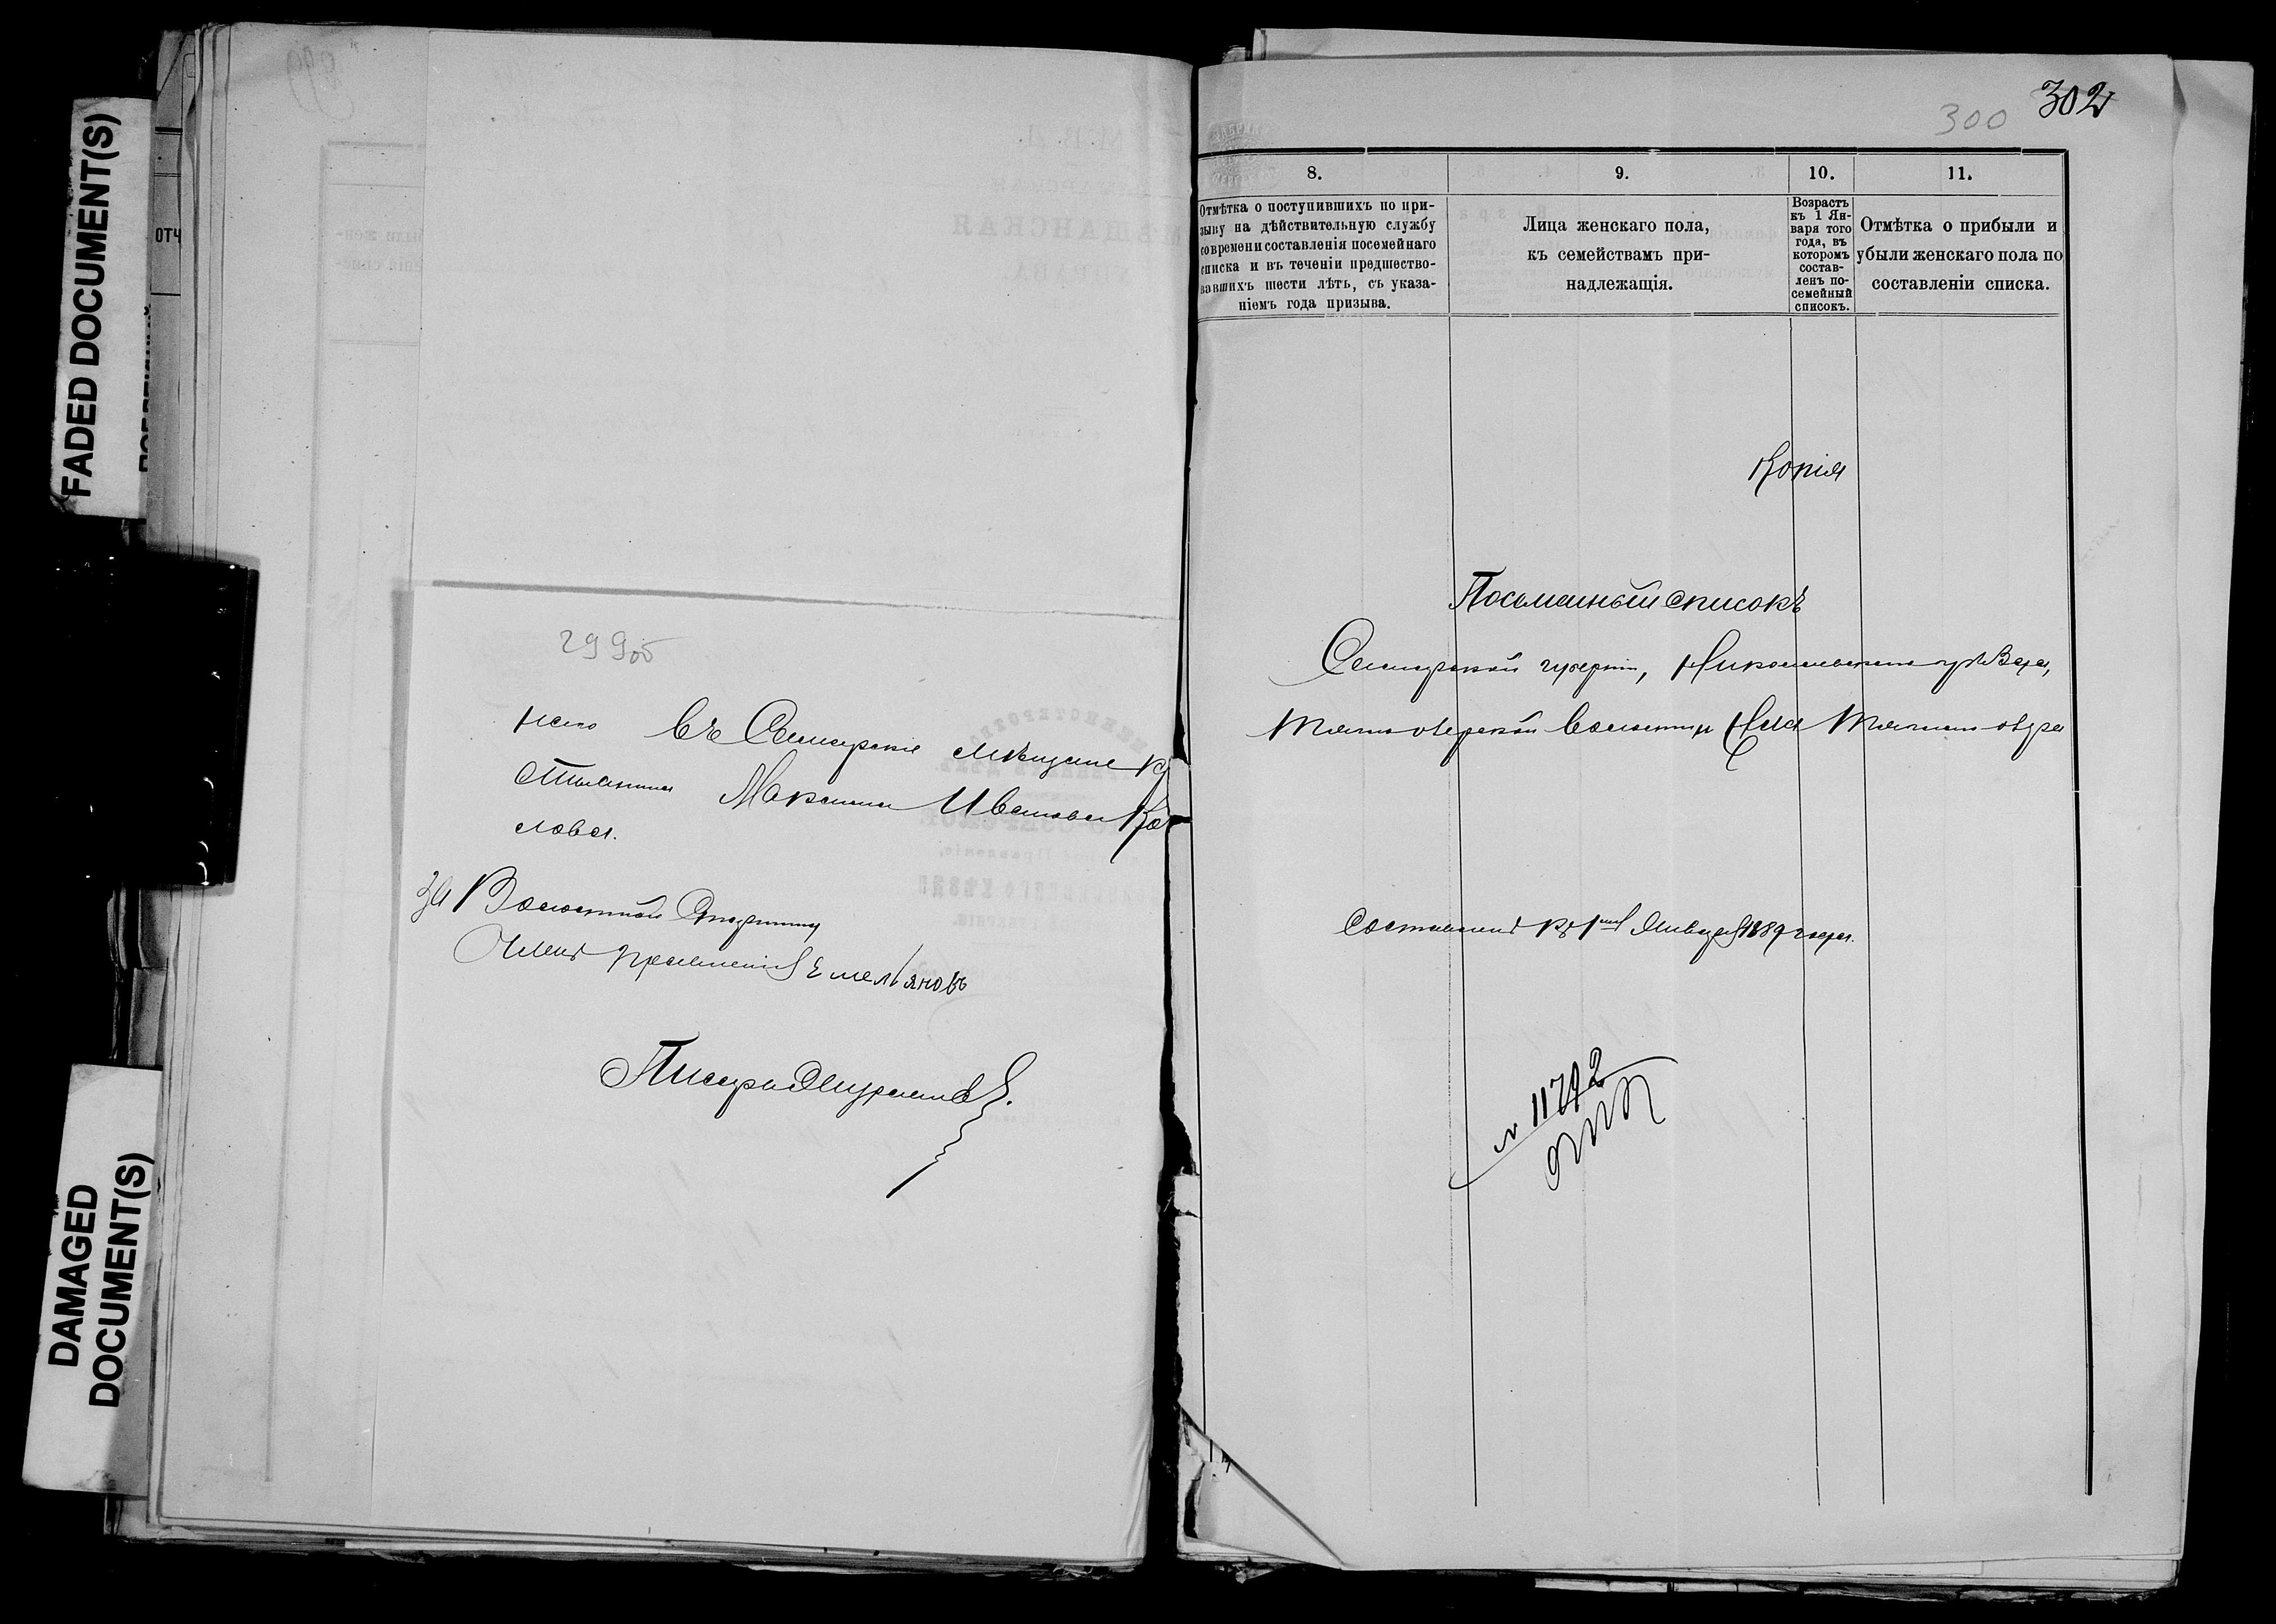 FADED DOCUMENT(S)
DAMAGED
DOCUMENT(S)
ОТЧ
299об
въ Самарские мѣщане
Максима Иванова Коз
лова.
За Волостной Старшина
Членъ правленія Емельяновъ
Писарь
300 302
8. 9. 10. 11.
Отмѣтка о поступившихъ по при-
зыву на дѣйствительную службу
со времени составленія посемейнаго
списка и въ теченіи предшество-
вавшихъ шести лѣтъ, съ указа-
ніемъ года призыва.
Лица женскаго пола,
къ семействамъ при-
надлежащія.
Возрастъ
къ 1 Ян-
варя того
года, въ
которомъ
состав-
ленъ по-
семейный
списокъ.
Отмѣтка о прибыли и
убыли женскаго пола по
составленіи списка.
Копія
Посемейный списокъ
Самарской губерніи, Николаевскаго уѣзда,
волости
Составленъ къ 1му Января 1889 года.
№ 11792